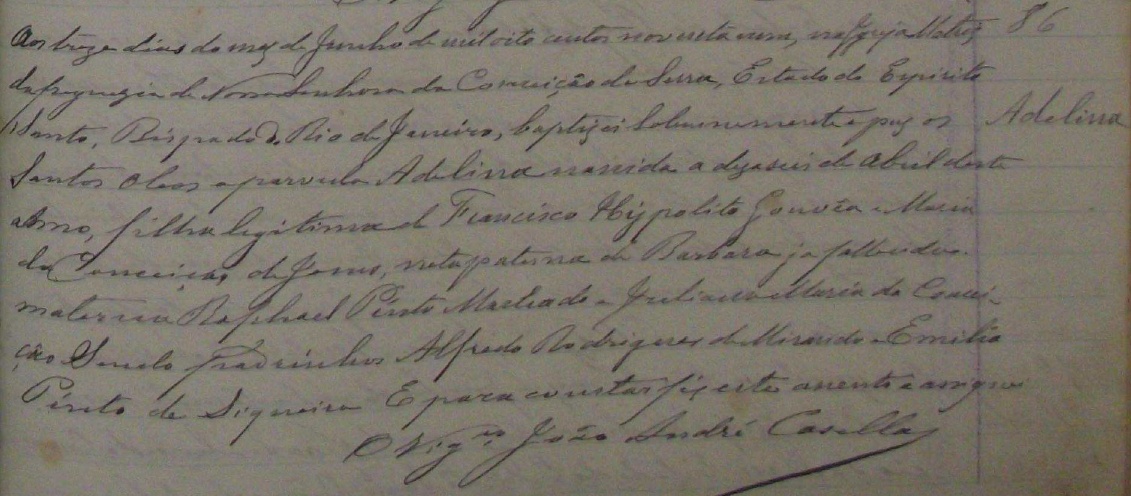 Aos treze dias do mez de Junho de mil oito centos noventa e um, na Igreja Matriz
da freguezia de Nossa Senhora da Conceição da Serra, Estado do Espirito
Santo, Bispado do Rio de Janeiro, baptizei solemnemente e puz os
Santos oleos a parvula Adelina nascida a dezaseis de Abril deste
anno, filha legitima de Francisco Hypolito Gouvêa e Maria
da Conceição de Jesus, neta paterna de Barbara ja fallecida
materna Raphael Pinto Machado e Juliana Maria da Concei-
ção Sendo padrinhos Alfredo Rodrigues de Miranda e Emilia
Pinto de Siqueira E para constar fiz este assento e assignei
O Vigro João André Casella
86
Adelina